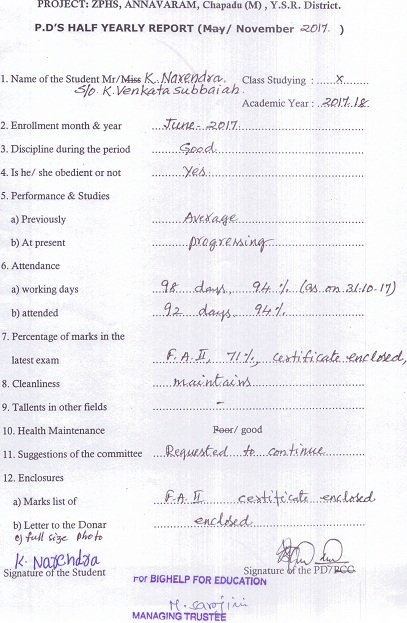 PROJECT: ZPHS, ANNAVARAM, Chapadu (M) , Y.S.R. District.
P.D'S HALF YEARLY REPORT (May/ November 2017. )
1. Name of the Student Mr/Miss K. Narendra. Class Studying : X
S/o. K. Venkata Subbaiah. Academic Year : 2017.18
2. Enrollment month & year June - 2017.
3. Discipline during the period Good
4. Is he/ she obedient or not Yes
5. Performance & Studies
a) Previously Average
b) At present progressing
6. Attendance
a) working days 98 days, 94% (as on 31-10-17)
b) attended 92 days 94%
7. Percentage of marks in the
latest exam F.A. II, 71%, certificate enclosed,
8. Cleanliness maintains
9. Tallents in other fields -
10. Health Maintenance Poor/ good
11. Suggestions of the committee Requested to continue
12. Enclosures
a) Marks list of F.A II certificate enclosed
b) Letter to the Donar enclosed
c) full size photo
K. Narendra
Signature of the Student Signature of the PD/RCC
For BIGHELP FOR EDUCATION
M. Sarojini
MANAGING TRUSTEE